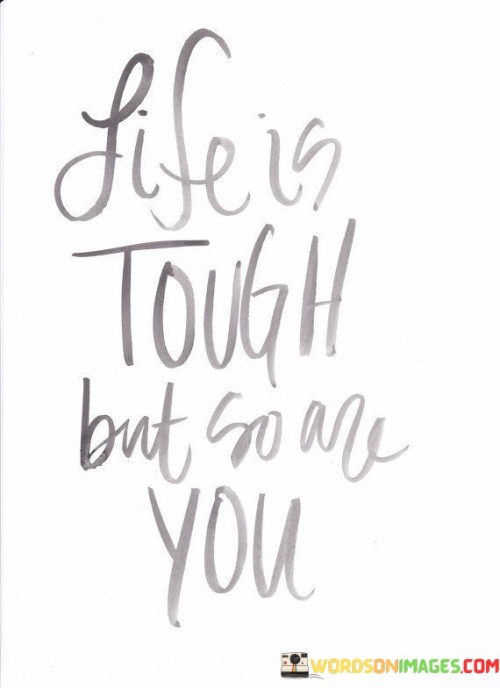 Life is
TOUGH
but so are
YOU
WORDSONIMAGES.COM